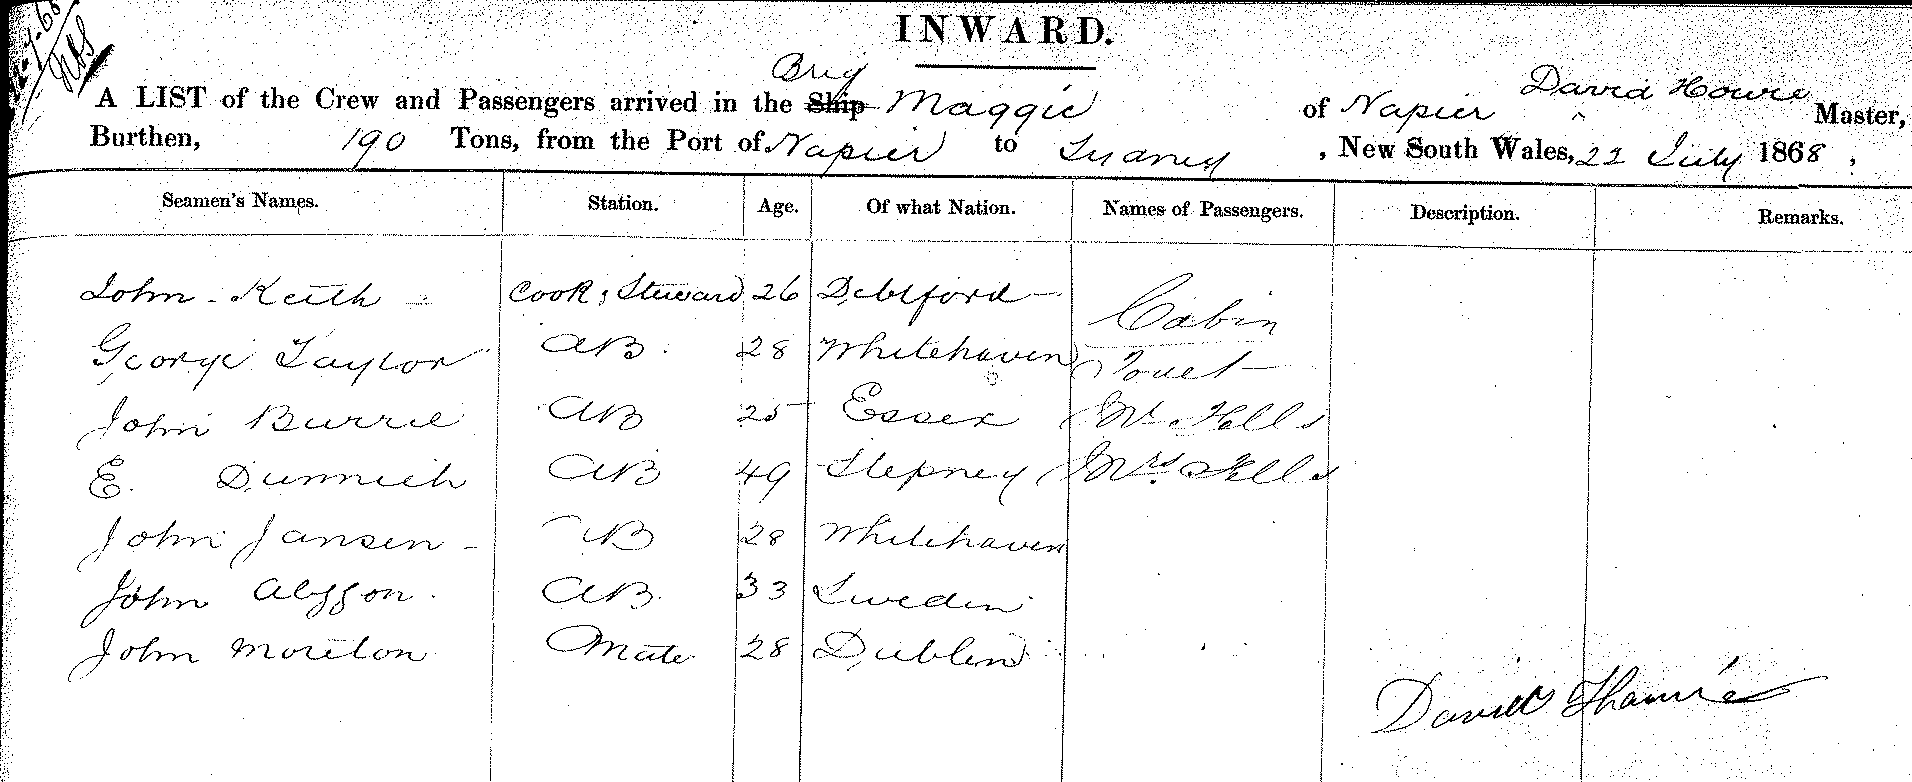 INWARD.
Brig
A LIST of the Crew and Passengers arrived in the Ship Maggie of Napier David Howie Master,
Burthen, 190 Tons, from the Port of Napier to Sydney, New South Wales, 22 July 1868,
Seamen's Names. Station. Age. Of what Nation. Names of Passengers. Description. Remarks.
John Keith - Cook & Steward 26 Debtford - Cabin
George Taylor AB. 28 Whitehaven
John Burrie AB 25 Essex Mr Hells
E. Dunnich AB 49 Stepney Mrs Hells
John Jansen - AB 28 Whitehaven
John AB. 33 Sweden
John Moreton Mate 28 Dublin
David